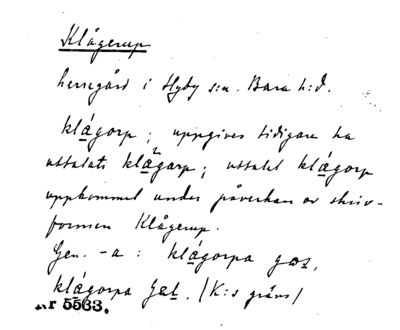 Klågerup
herregård i Hyby s:n. Bara h:d.
klågorp; uppgives tidigare ha
uttalats klågarp; uttalet klågorp
uppkommet under påverkan av skriv-
formen Klågerup.
Gen. -a: klågorpa gɷz,
klågorpa gæl. (K:s gräns)
nr 5563.